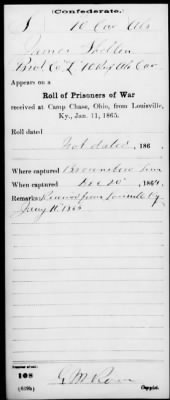 (Confederate.)
S 10 Cav Ala
James Shelton
Pvt Co "L" 10 Regt Ala Cav
Appears on a
Roll of Prisoners of War
received at Camp Chase, Ohio, from Louisville,
Ky., Jan. 11, 1865.
Roll dated
Not dated, 186
Where captured
When captured Dec 20, 1864
Remarks: Received from Louisville Ky
Jany 11 1865
Number of roll:
108
(639b) Copyist.